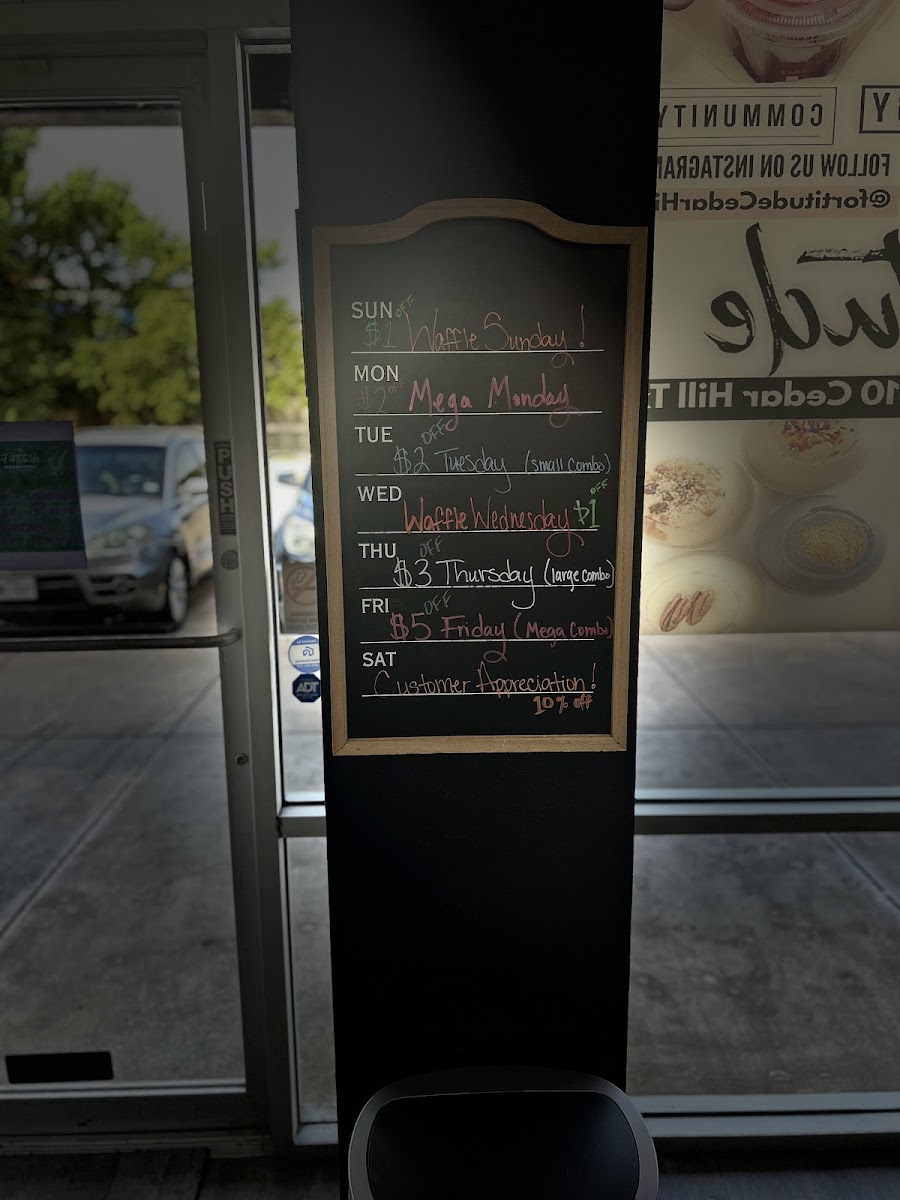 SUN OFF
$1 Waffle Sunday!
MON
$2 OFF Mega Monday
TUE OFF
$2 Tuesday (small combo)
WED OFF
Waffle Wednesday $1
THU OFF
$3 Thursday (large combo)
FRI OFF
$5 Friday (Mega Combo)
SAT
Customer Appreciation!
10% off
PUSH
ADT
COMMUNITY
FOLLOW US ON INSTAGRAM
@fortitudeCedarHi
tude
10 Cedar Hill T